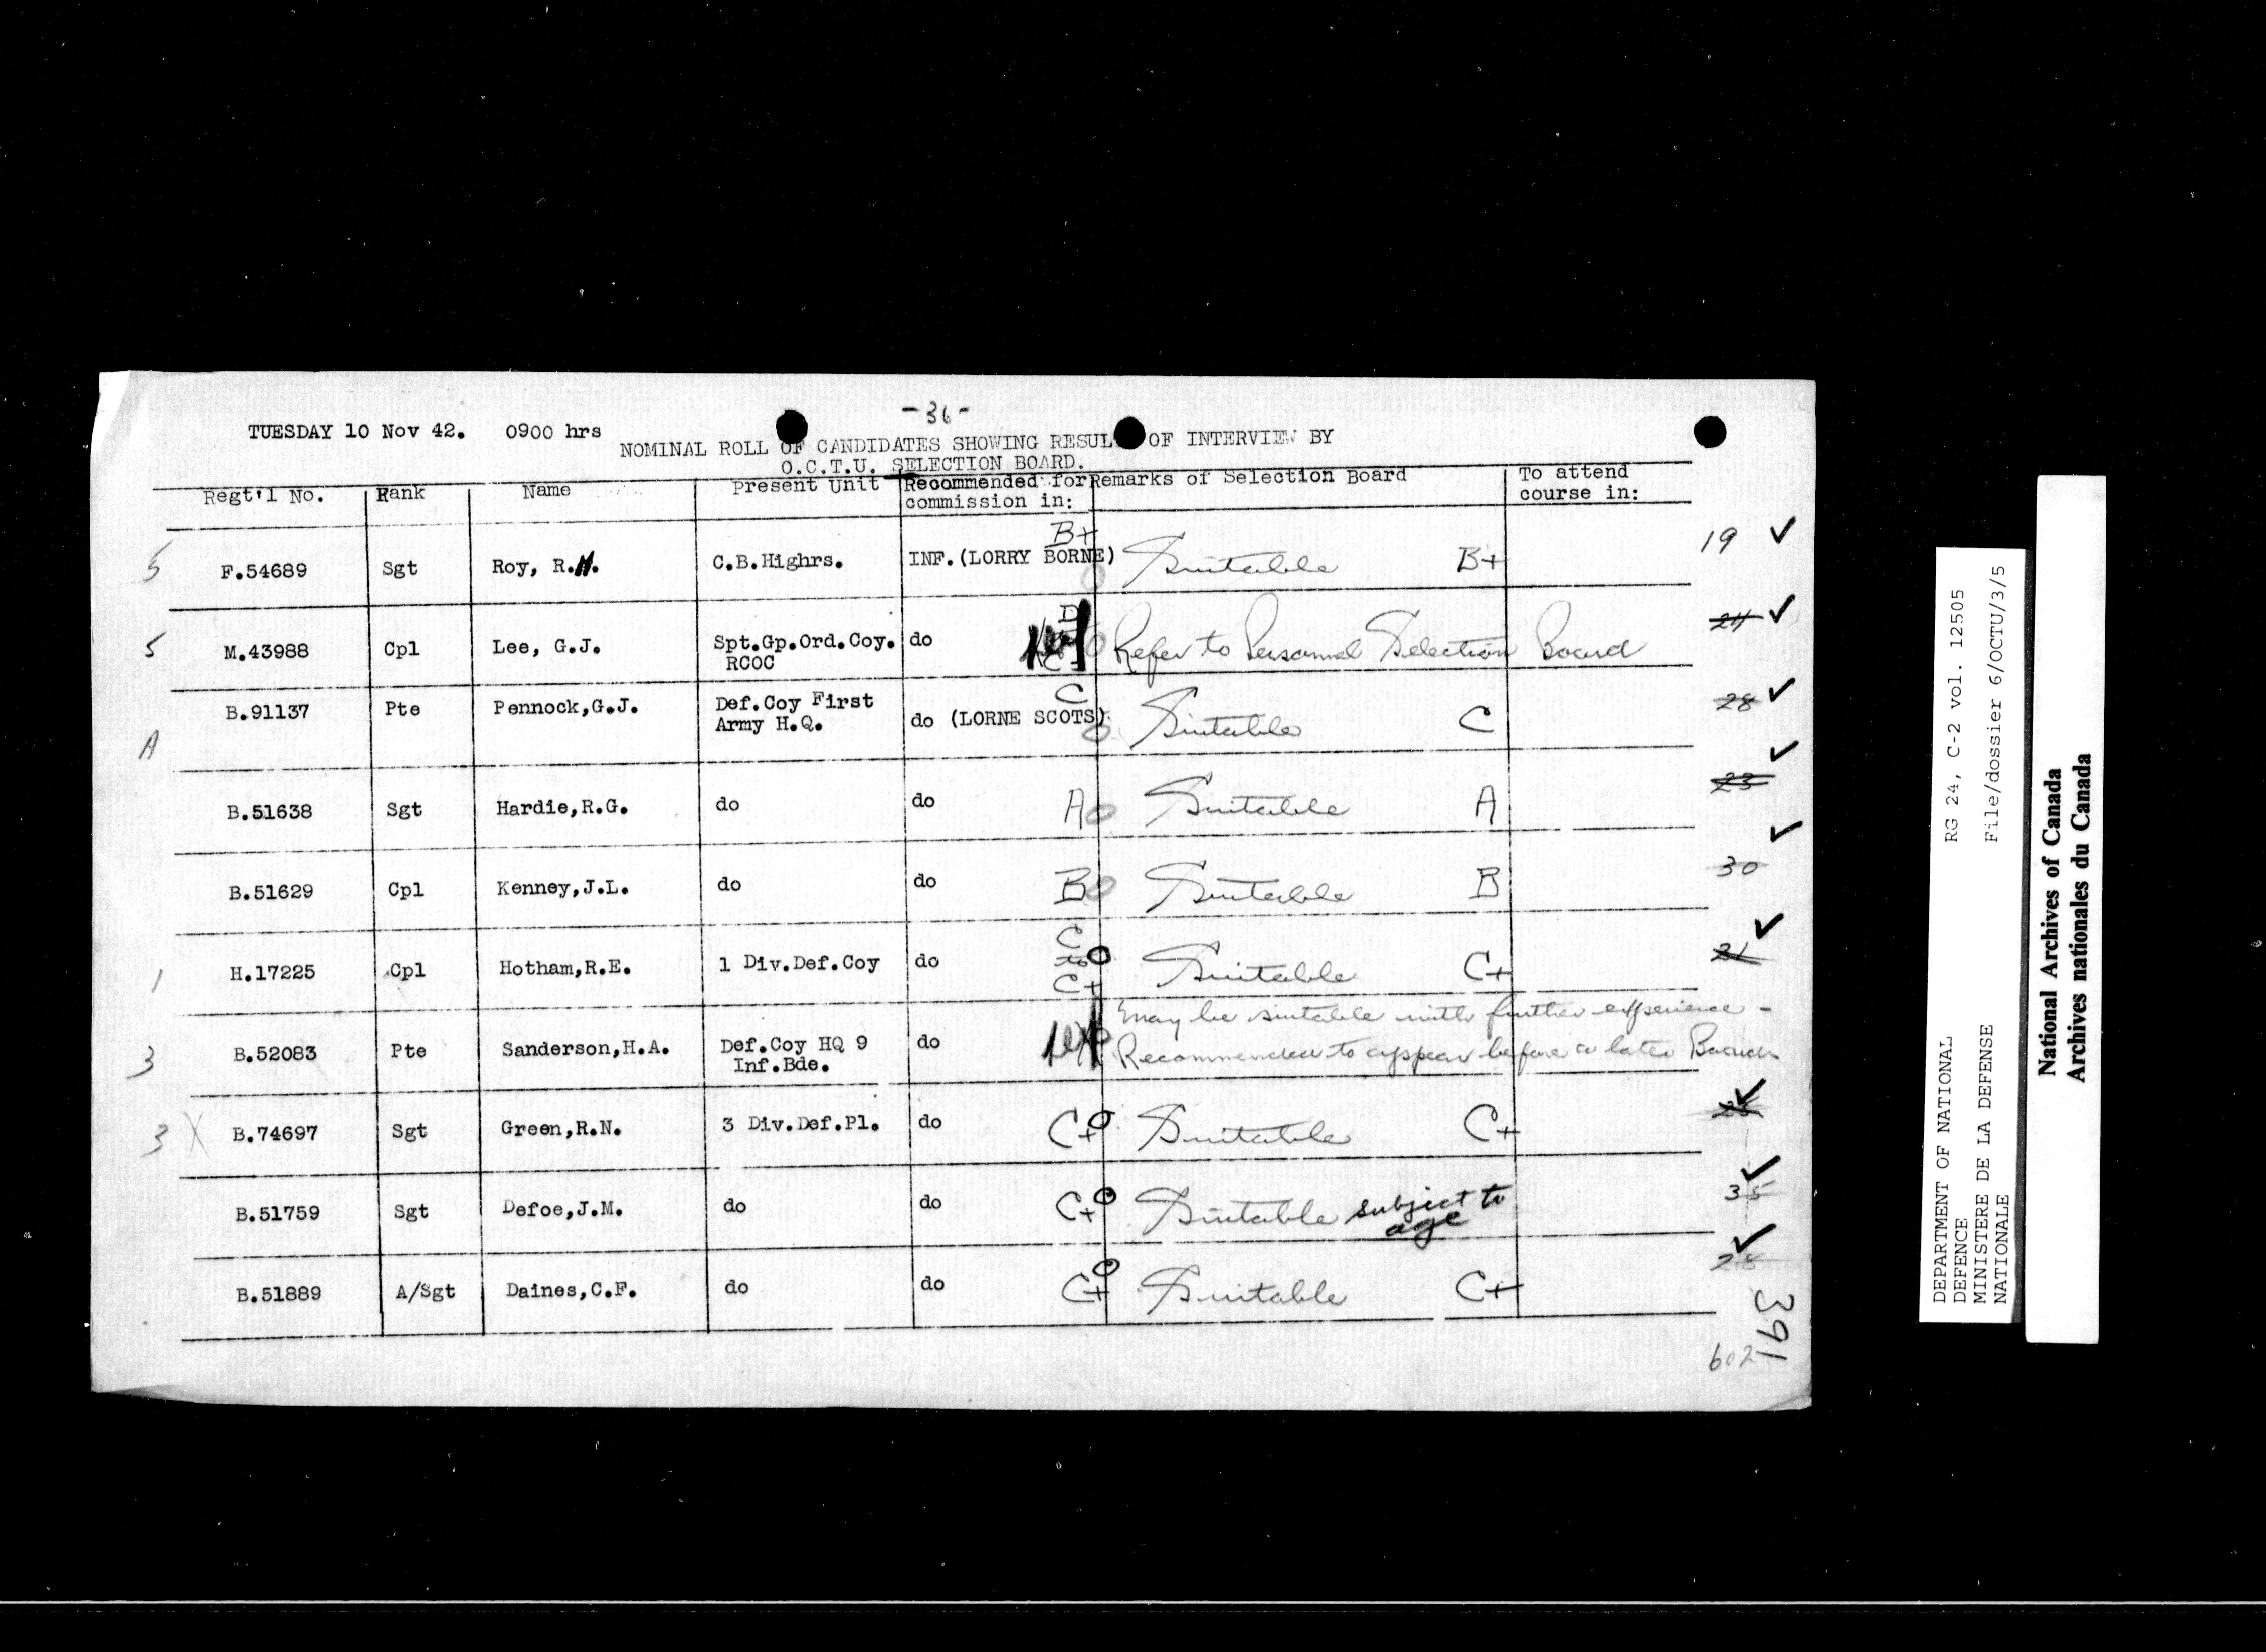 -36-
TUESDAY 10 Nov 42. 0900 hrs
NOMINAL ROLL OF CANDIDATES SHOWING RESUL OF INTERVIEW BY
O.C.T.U. SELECTION BOARD.
Regt'l No. Rank Name Present Unit Recommended for commission in: Remarks of Selection Board To attend course in:
5 F.54689 Sgt Roy, R.H. C.B.Highrs. INF.(LORRY BORNE) B+ Suitable B+ 19 ✓
5 M.43988 Cpl Lee, G.J. Spt.Gp.Ord.Coy. RCOC do D Refer to Personnel Selection Board 24 ✓
B.91137 Pte Pennock,G.J. Def.Coy First Army H.Q. do (LORNE SCOTS) C Suitable C 28 ✓
A
B.51638 Sgt Hardie,R.G. do do A Suitable A 23 ✓
B.51629 Cpl Kenney,J.L. do do B Suitable B 30 ✓
1 H.17225 Cpl Hotham,R.E. 1 Div.Def.Coy do C to C+ Suitable C+ ✓
3 B.52083 Pte Sanderson,H.A. Def.Coy HQ 9 Inf.Bde. do May be suitable with further experience - Recommended to appear before a later Board
3 X B.74697 Sgt Green,R.N. 3 Div.Def.Pl. do C+ Suitable C+ ✓
B.51759 Sgt Defoe,J.M. do do C+ Suitable subject to age 35 ✓
B.51889 A/Sgt Daines,C.F. do do C+ Suitable C+ 28 ✓
391
602
DEPARTMENT OF NATIONAL RG 24, C-2 vol. 12505
DEFENCE
MINISTERE DE LA DEFENSE File/dossier 6/OCTU/3/5
NATIONALE
National Archives of Canada
Archives nationales du Canada